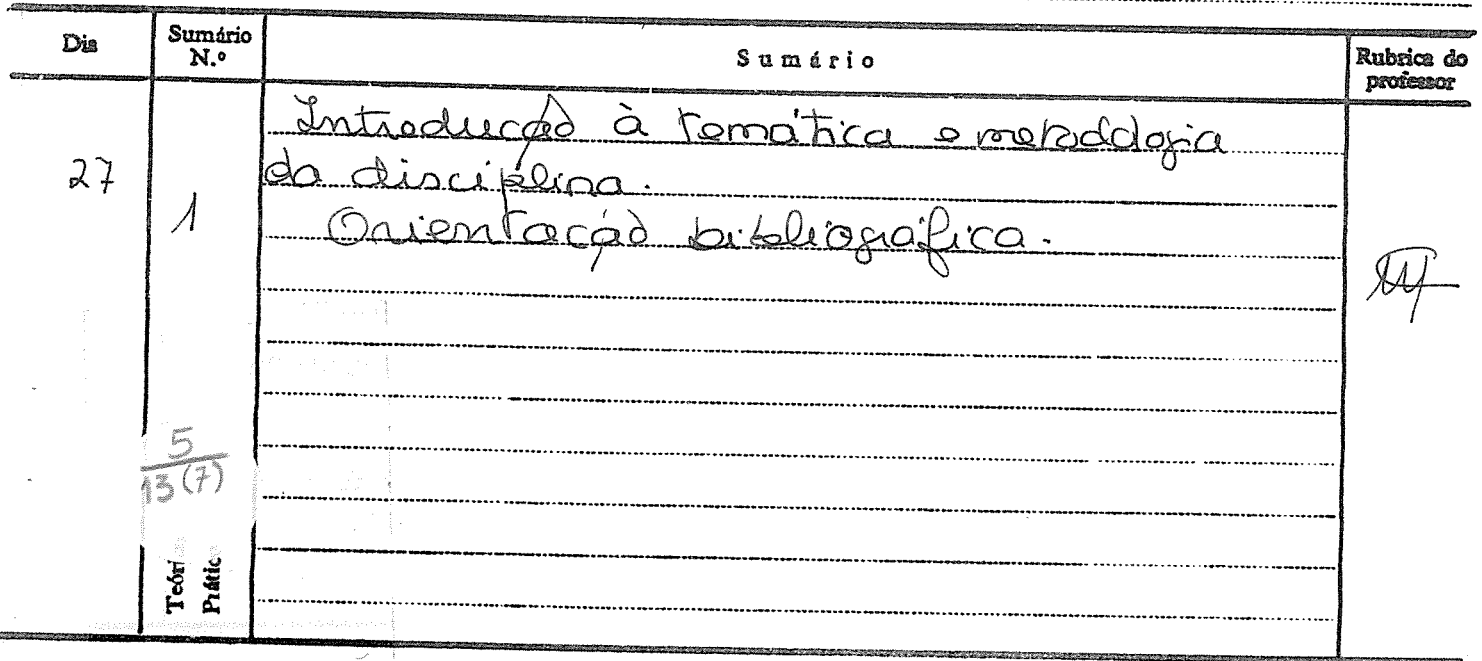 Dia
Sumário N.º
Sumário
Rubrica do professor
27
1
Introdução à temática e metodologia
da disciplina.
Orientação bibliográfica.
5
13 (7)
Teóri
Prátic